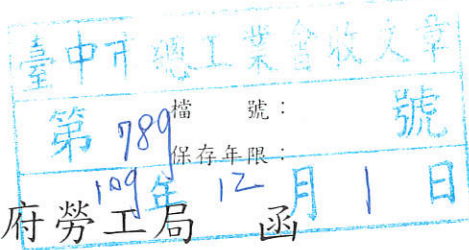 臺中市總工業會收文章
檔 號：
第 789 號
保存年限：
109年 12 月 1 日
府勞工局 函